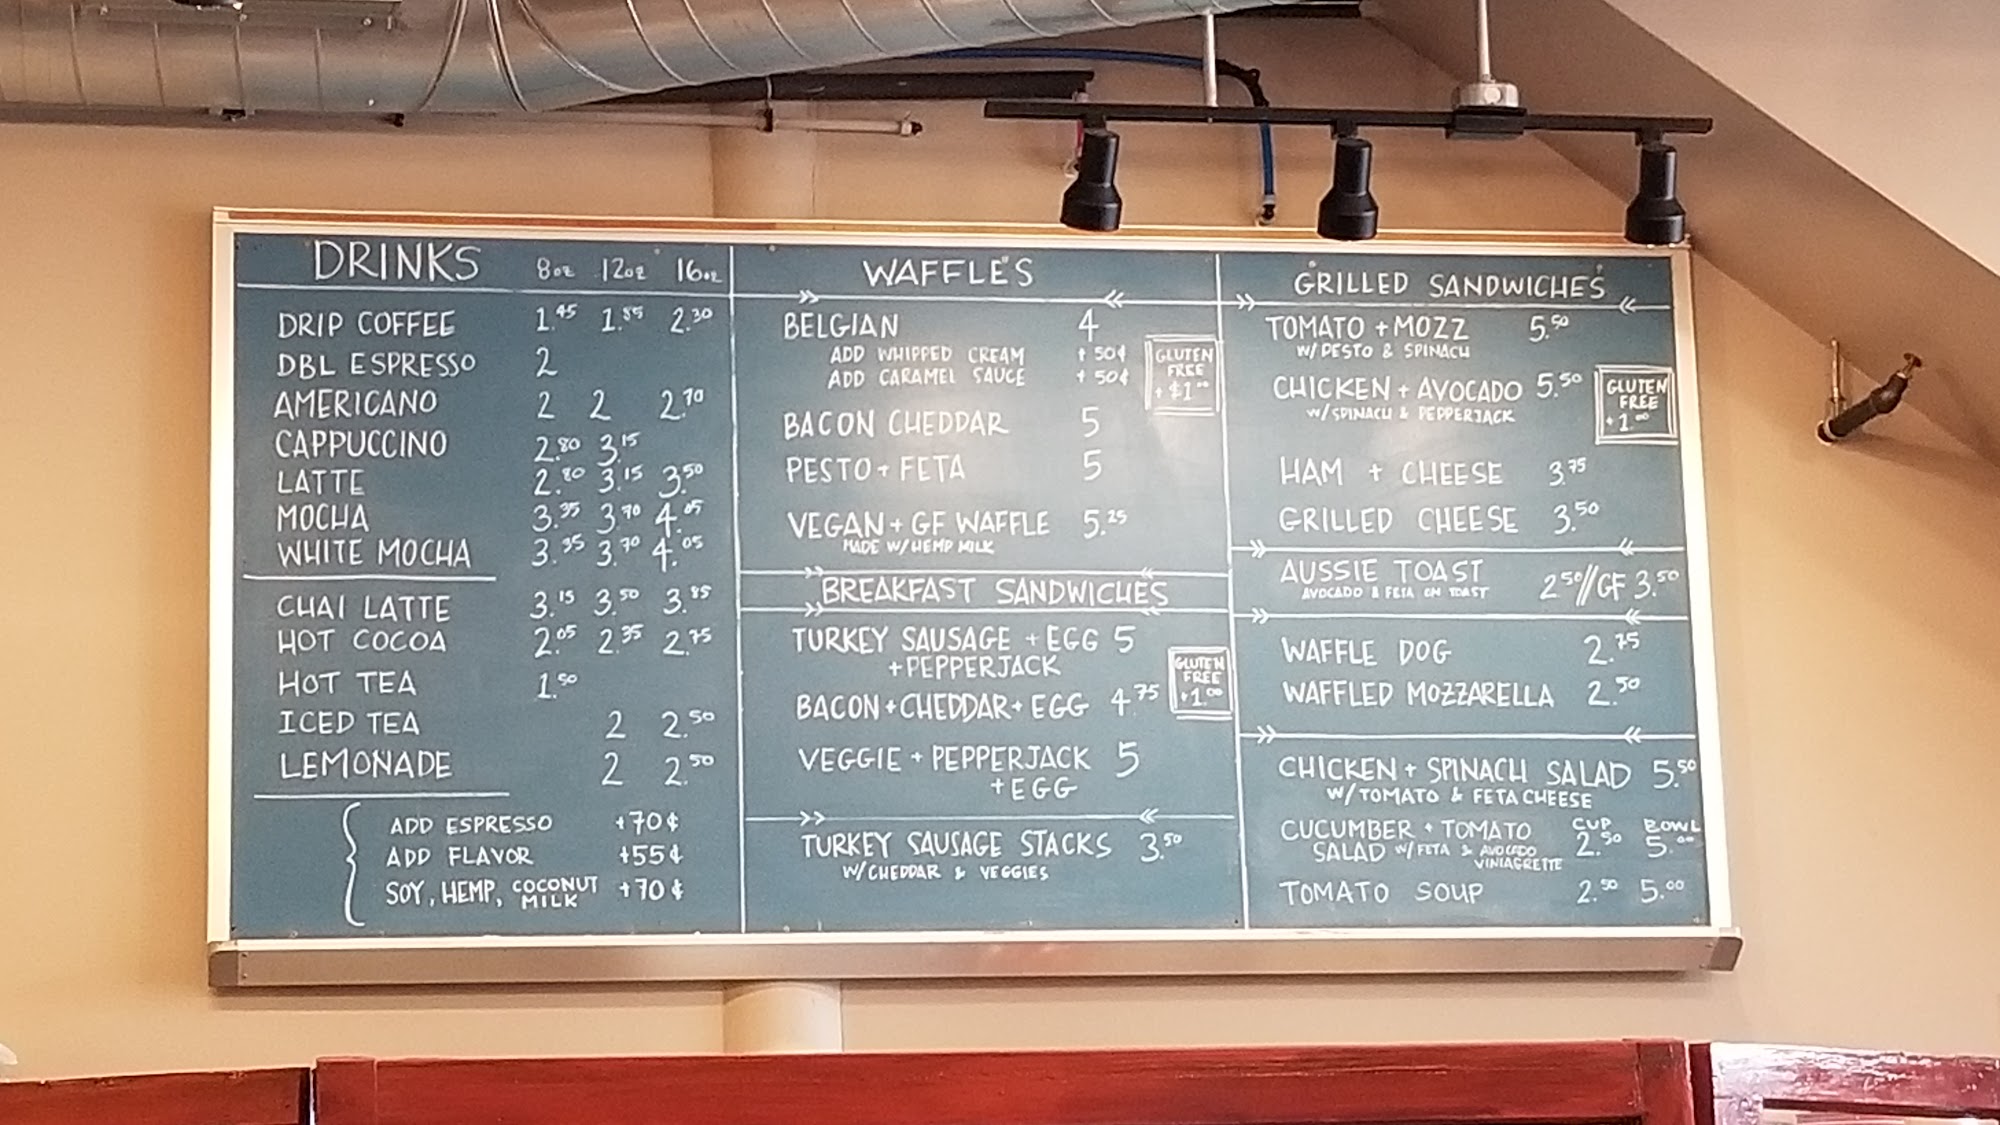 DRINKS 8oz 12oz 16oz
DRIP COFFEE 1.45 1.85 2.30
DBL ESPRESSO 2
AMERICANO 2 2 2.70
CAPPUCCINO 2.80 3.15
LATTE 2.80 3.15 3.50
MOCHA 3.35 3.70 4.05
WHITE MOCHA 3.35 3.70 4.05
CHAI LATTE 3.15 3.50 3.85
HOT COCOA 2.05 2.35 2.75
HOT TEA 1.50
ICED TEA 2 2.50
LEMONADE 2 2.50
ADD ESPRESSO +70¢
ADD FLAVOR +55¢
SOY, HEMP, COCONUT MILK +70¢
WAFFLES
BELGIAN 4
ADD WHIPPED CREAM +50¢
ADD CARAMEL SAUCE +50¢
GLUTEN
FREE
+$1.00
BACON CHEDDAR 5
PESTO + FETA 5
VEGAN + GF WAFFLE 5.25
MADE W/HEMP MILK
BREAKFAST SANDWICHES
TURKEY SAUSAGE + EGG 5
+ PEPPERJACK
BACON + CHEDDAR + EGG 4.75
GLUTEN
FREE
+1.00
VEGGIE + PEPPERJACK 5
+ EGG
TURKEY SAUSAGE STACKS 3.50
W/CHEDDAR & VEGGIES
GRILLED SANDWICHES
TOMATO + MOZZ 5.50
W/ PESTO & SPINACH
CHICKEN + AVOCADO 5.50
W/SPINACH & PEPPERJACK
GLUTEN
FREE
+1.00
HAM + CHEESE 3.75
GRILLED CHEESE 3.50
AUSSIE TOAST 2.50//GF 3.50
AVOCADO & FETA ON TOAST
WAFFLE DOG 2.75
WAFFLED MOZZARELLA 2.50
CHICKEN + SPINACH SALAD 5.50
W/TOMATO & FETA CHEESE
CUP BOWL
CUCUMBER + TOMATO 2.50 5.00
SALAD W/FETA & AVOCADO
VINIAGRETTE
TOMATO SOUP 2.50 5.00